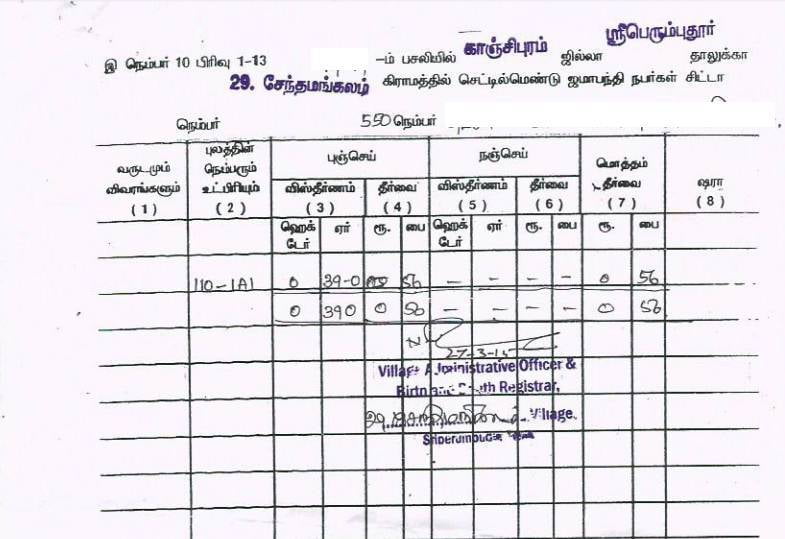 ஸ்ரீபெரும்புதூர்
இ நெம்பர் 10 பிரிவு 1-13 -ம் பசலியில் காஞ்சிபுரம் ஜில்லா தாலுக்கா
29. சேந்தமங்கலம் கிராமத்தில் செட்டில்மெண்டு ஜமாபந்தி நபர்கள் சிட்டா
நெம்பர் 550 நெம்பர்
வருடமும் விவரங்களும் (1)
புலத்தின் நெம்பரும் உட்பிரியும் (2)
புஞ்செய்
விஸ்தீர்ணம் (3) தீர்வை (4)
நஞ்செய்
விஸ்தீர்ணம் (5) தீர்வை (6)
மொத்தம் தீர்வை (7)
ஷரா (8)
ஹெக்டேர் ஏர் ரூ. பை ஹெக்டேர் ஏர் ரூ. பை ரூ. பை
110-1A1 0 39-0 56 – – – – 0 56
0 390 0 56 – – – – 0 56
27-3-15
Village Administrative Officer &
Birth and Death Registrar,
Village,
Sriperumbudur